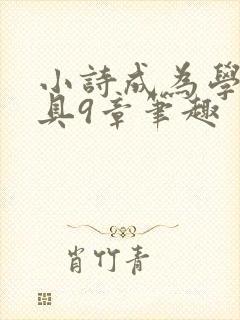 小詩成為學
具9章筆趣
肖竹青